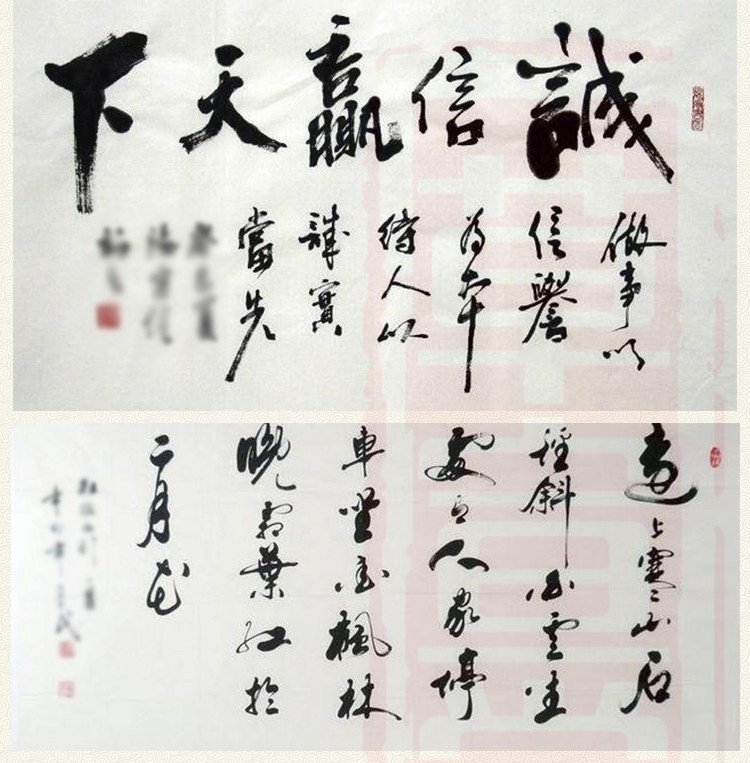 誠信贏天下
做事以
信譽
為本
待人以
誠實
當先
遠上寒山石
徑斜白雲生
處有人家停
車坐愛楓林
晚霜葉紅於
二月花